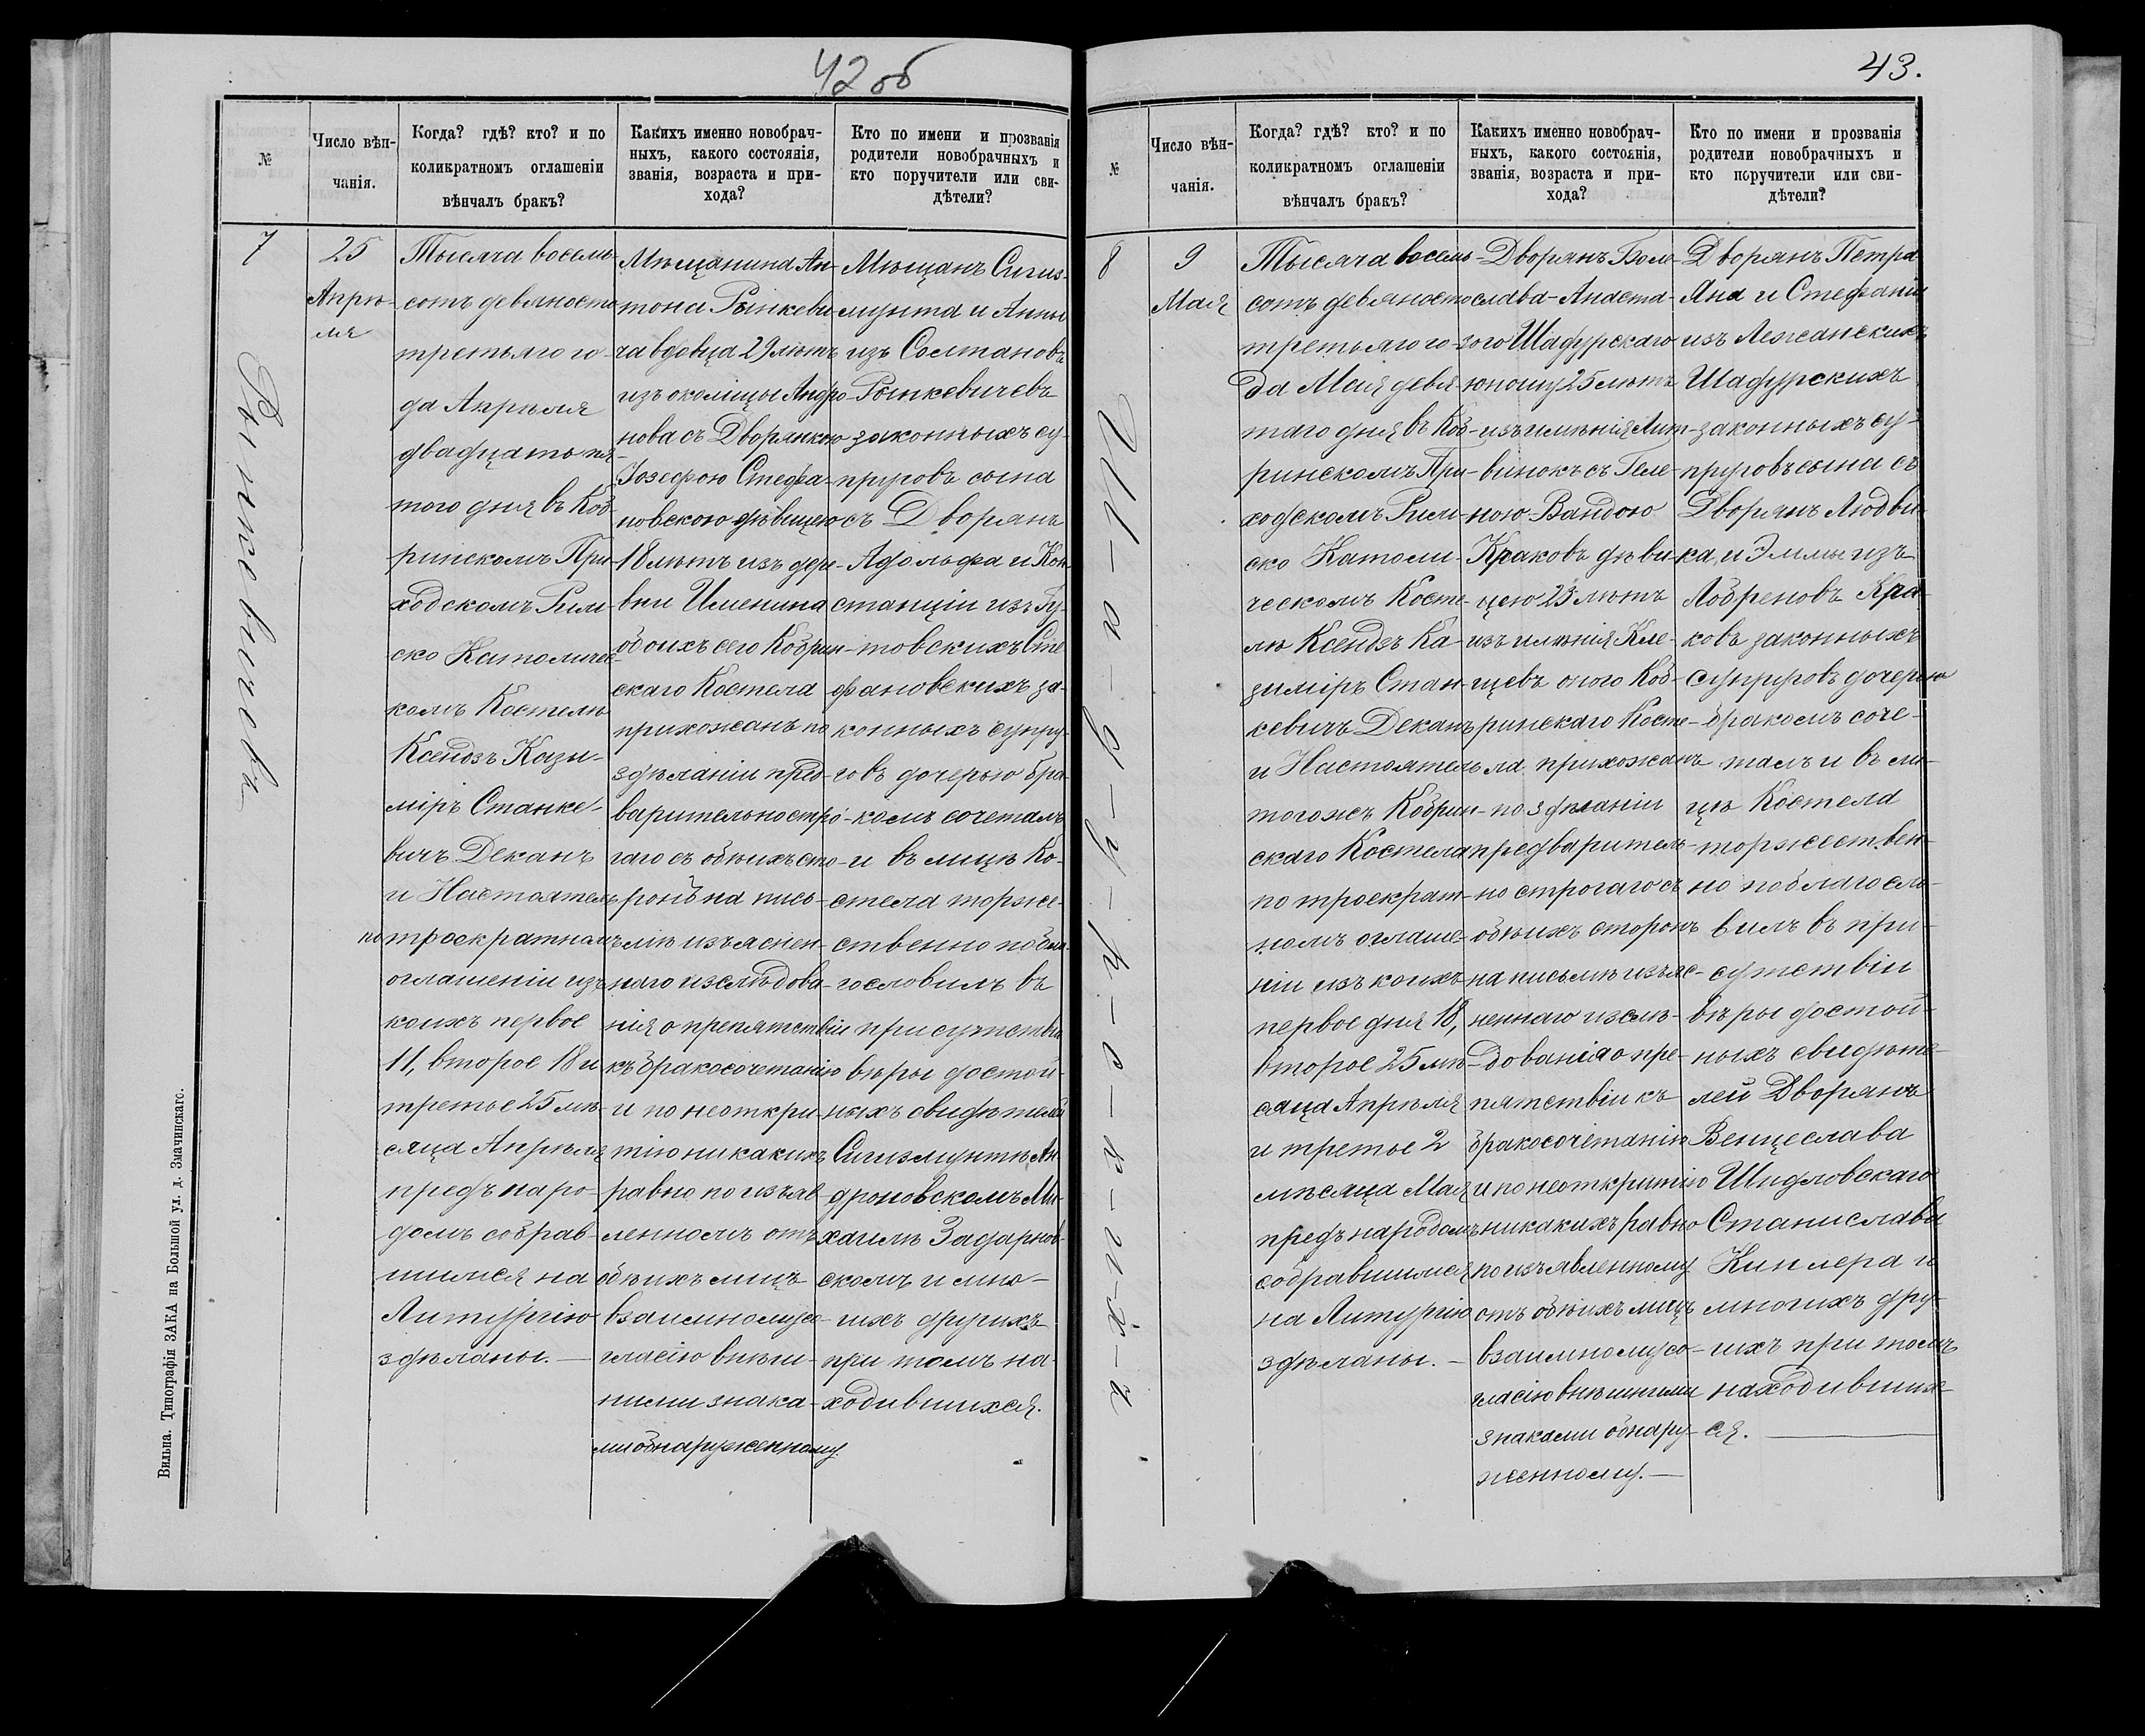 42 об
№
Число вѣн-
чанія.
Когда? гдѣ? кто? и по
коликратномъ оглашеніи
вѣнчалъ бракъ?
Какихъ именно новобрач-
ныхъ, какого состоянія,
званія, возраста и при-
хода?
Кто по имени и прозванія
родители новобрачныхъ и
кто поручители или сви-
дѣтели?
7
Рынкевичевъ
25
Апрѣ-
ля
Тысяча восемь-
сотъ девяносто
третьяго го-
да Апрѣля
двадцать пя-
того дня въ Коб-
ринскомъ При-
ходскомъ Рим-
ско Католичес-
комъ Костелѣ
Ксендзъ Кази-
міръ Станке-
вичъ Деканъ
и Настоятель
по троекратномъ
оглашеніи изъ
коихъ первое
11, второе 18 и
третье 25 мѣ-
сяца Апрѣля
предъ наро-
домъ собрав-
шимся на
Литургію
здѣланы. —
Мѣщанина Ан-
тона Рынкеви-
ча вдовца 29 лѣтъ
изъ околицы Андро-
нова съ Дворянкою
Іозефою Стефа-
новскою дѣвицею
18 лѣтъ изъ дере-
вни Именина
обоихъ сего Кобрин-
скаго Костела
прихожанъ по
здѣланіи пред-
варительно стро-
гаго съ обѣихъ сто-
ронъ на пись-
мѣ изъяснен-
наго изслѣдова-
нія о препятствіи
къ бракосочетанію
и по неоткры-
тію никакихъ
равно по изъяв-
ленномъ отъ
обѣихъ лицъ
взаимному со-
гласію внѣш-
ними знака-
ми обнаруженному
Мѣщанъ Сигиз-
мунта и Анны
изъ Солтановъ
Рынкевичевъ
законныхъ су-
пруговъ сына
съ Дворянъ
Адольфа и Кон-
станціи изъ Гу-
товскихъ Сте-
фановскихъ за-
конныхъ супру-
говъ дочерью бра-
комъ сочеталъ
и въ лицѣ Ко-
стела торже-
ственно побла-
гословилъ въ
присутствіи
вѣры достой-
ныхъ свидѣтелей
Сигизмунтѣ Ан-
дроновскомъ Ми-
хаилѣ Задарнов-
скомъ и мно-
гихъ другихъ
при томъ на-
ходившихся.
Вильна. Типографія ЗАКА на Большой ул. д. Змачинскаго.
43.
№
Число вѣн-
чанія.
Когда? гдѣ? кто? и по
коликратномъ оглашеніи
вѣнчалъ бракъ?
Какихъ именно новобрач-
ныхъ, какого состоянія,
званія, возраста и при-
хода?
Кто по имени и прозванія
родители новобрачныхъ и
кто поручители или сви-
дѣтели?
8
9
Мая
Тысяча восемь-
сотъ девяносто
третьяго го-
да Мая девя-
таго дня въ Коб-
ринскомъ При-
ходскомъ Рим-
ско Католи-
ческомъ Косте-
лѣ Ксендзъ Ка-
зиміръ Стан-
кевичъ Деканъ
и Настоятель
того жъ Кобрин-
скаго Костела
по троекрат-
номъ оглаше-
ніи изъ коихъ
первое дня 18,
второе 25 мѣ-
сяца Апрѣля
и третье 2
мѣсяца Мая
предъ народомъ
собравшимся
на Литургію
здѣланы. —
Дворянъ Боле-
слава-Анаста-
зого Шадурскаго
юношу 25 лѣтъ
изъ имѣнія Лит-
винокъ съ Геле-
ною-Вандою
Краковъ дѣви-
цею 23 лѣтъ
изъ имѣнія Кле-
щевъ оного Коб-
ринскаго Косте-
ла прихожанъ
по здѣланіи
предваритель-
но строгаго съ
обѣихъ сторонъ
на письмѣ изъяс-
неннаго изслѣ-
дованія о пре-
пятствіи къ
бракосочетанію
и по неоткрытію
никакихъ равно
по изъявленному
отъ обѣихъ лицъ
взаимному со-
гласію внѣшними
знаками обнару-
женному. —
Дворянъ Петра
Яна и Стефаніи
изъ Лежанскихъ
Шадурскихъ
законныхъ су-
пруговъ сына съ
Дворянъ Людви-
ка и Эммы изъ
Лобреновъ Кра-
ковъ законныхъ
супруговъ дочерью
бракомъ соче-
талъ и въ ли-
цѣ Костела
торжествен-
но поблагосло-
вилъ въ при-
сутствіи
вѣры достой-
ныхъ свидѣте-
лей Дворянъ
Венцеслава
Шидловскаго
Станислава
Кинлера и
многихъ дру-
гихъ при томъ
находивших-
ся. —